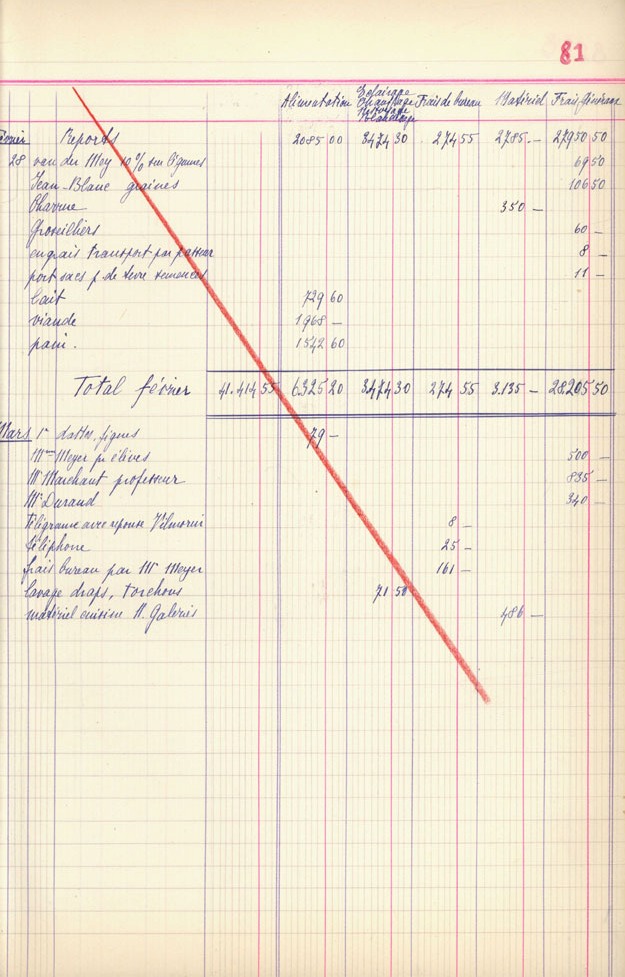 81
Alimentation Eclairage Chauffage Nettoyage Blanchissage Frais de bureau Matériel Frais Généraux
Février Reports 2085 00 3474 30 274 55 2785.- 27950 50
28 van der Mey 10% sur légumes 69 50
Jean-Blanc graines 106 50
Charrue 350 -
Groseilliers 60 -
engrais transport par passeur 8 -
port sacs p. de terre semences 11 -
lait 729 60
viande 1968 -
pain. 1542 60
Total février 41.414 55 6325 20 3474 30 274 55 3.135 - 28.205 50
Mars 1er dattes, figues 79 -
Mme Meyer pr élèves 500 -
Mr Marchant professeur 835 -
Mr Durand 340 -
télégramme avec réponse Vilmorin 8 -
téléphone 25 -
frais bureau par Mr Meyer 161 -
lavage draps, torchons 71 50
matériel cuisine N. Galeries 486 -